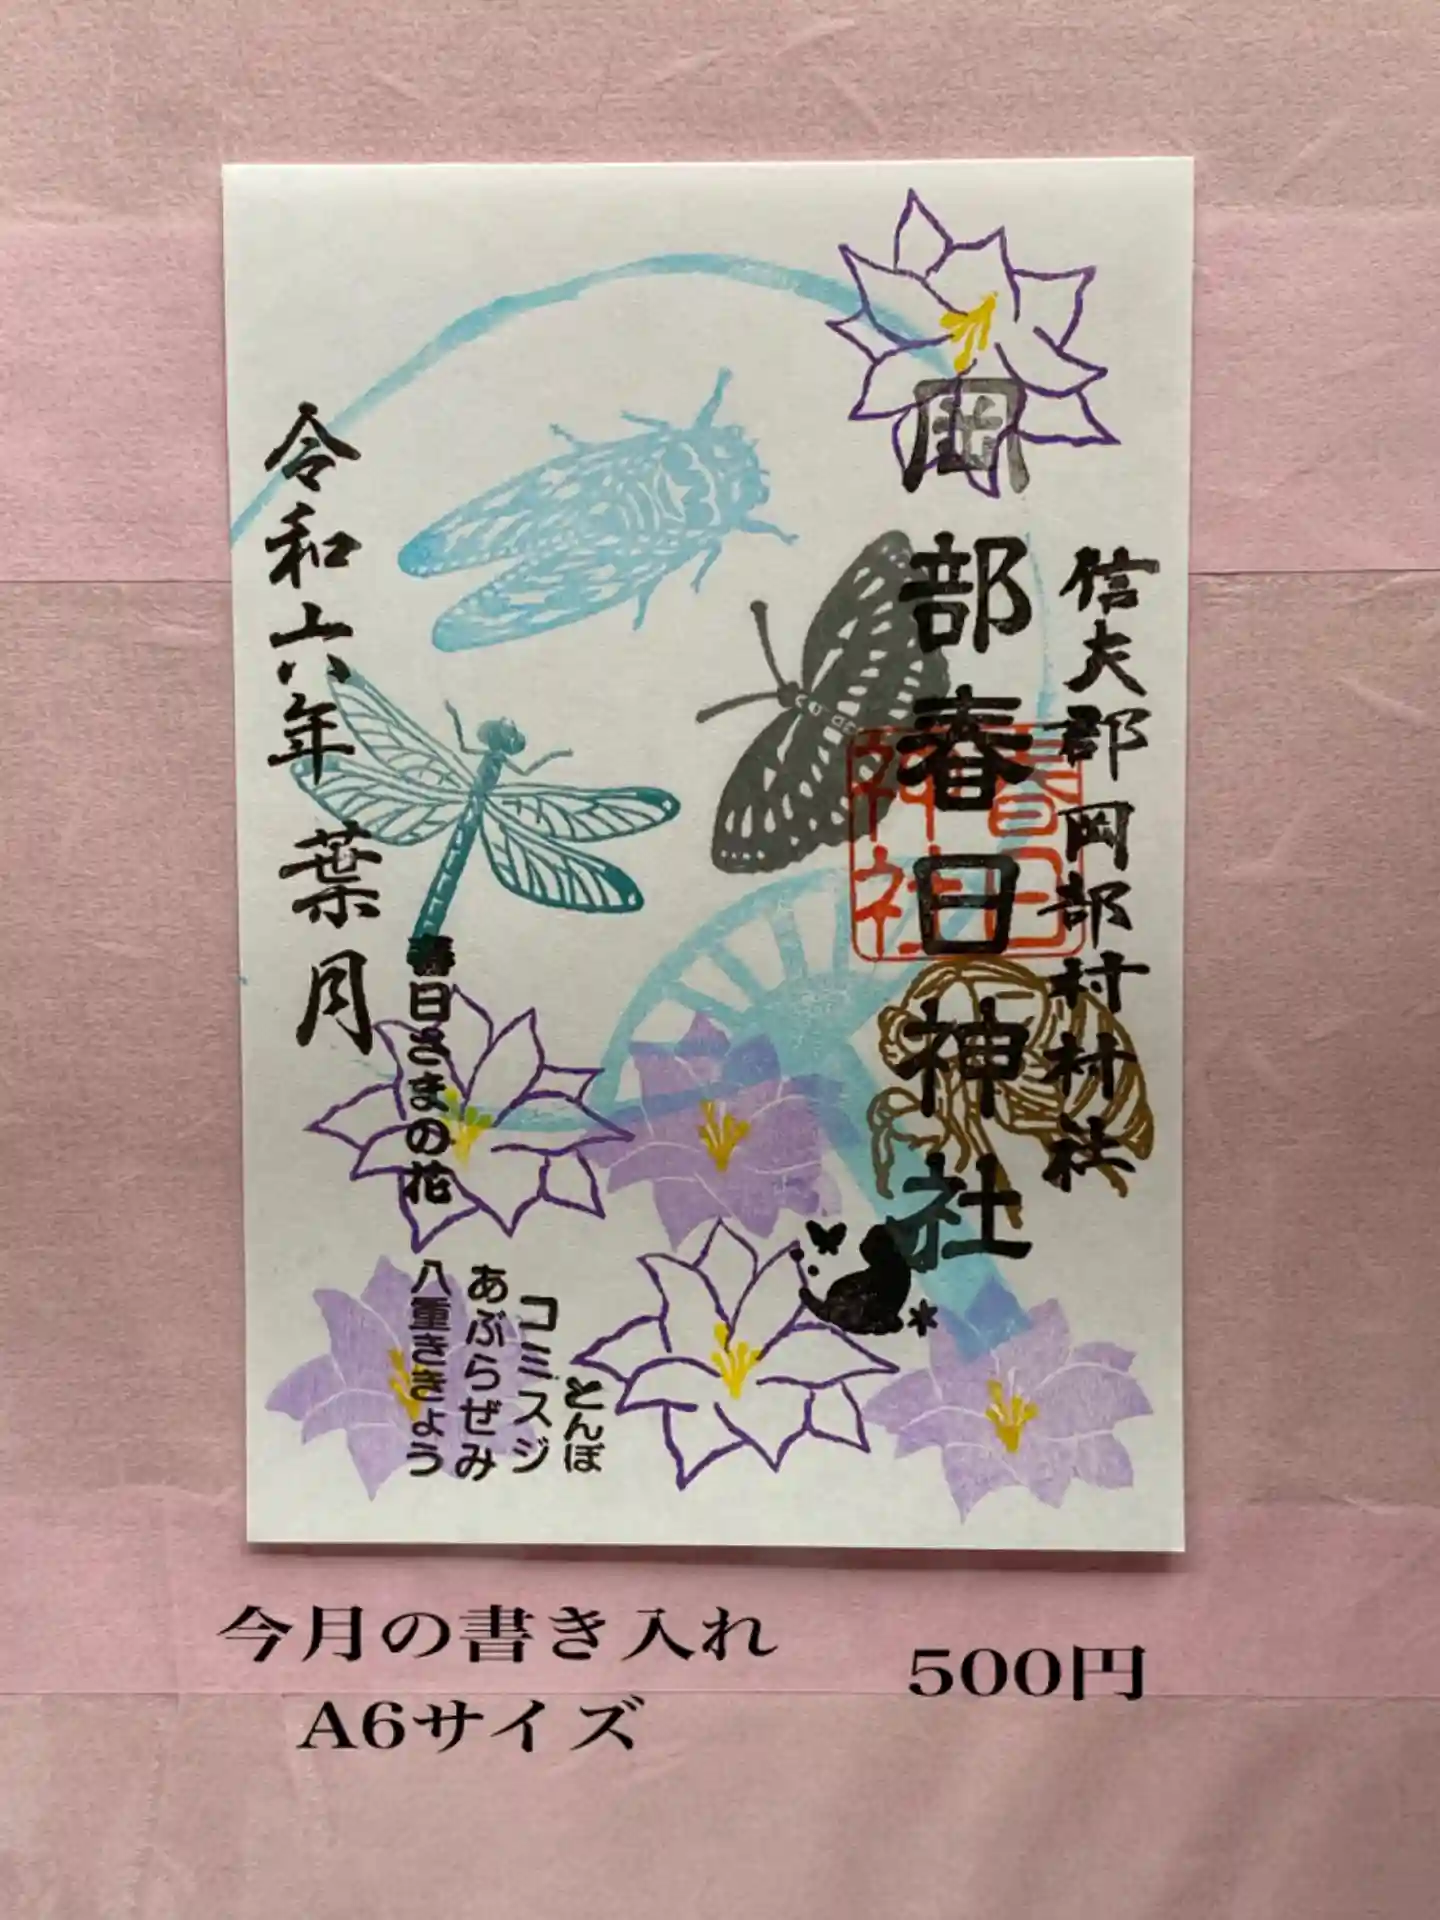 信夫郡岡部村村社
岡部春日神社
春日
神社
令和六年 葉月
春日さまの花
とんぼ
コミスジ
あぶらぜみ
八重ききょう
今月の書き入れ
A6サイズ
500円